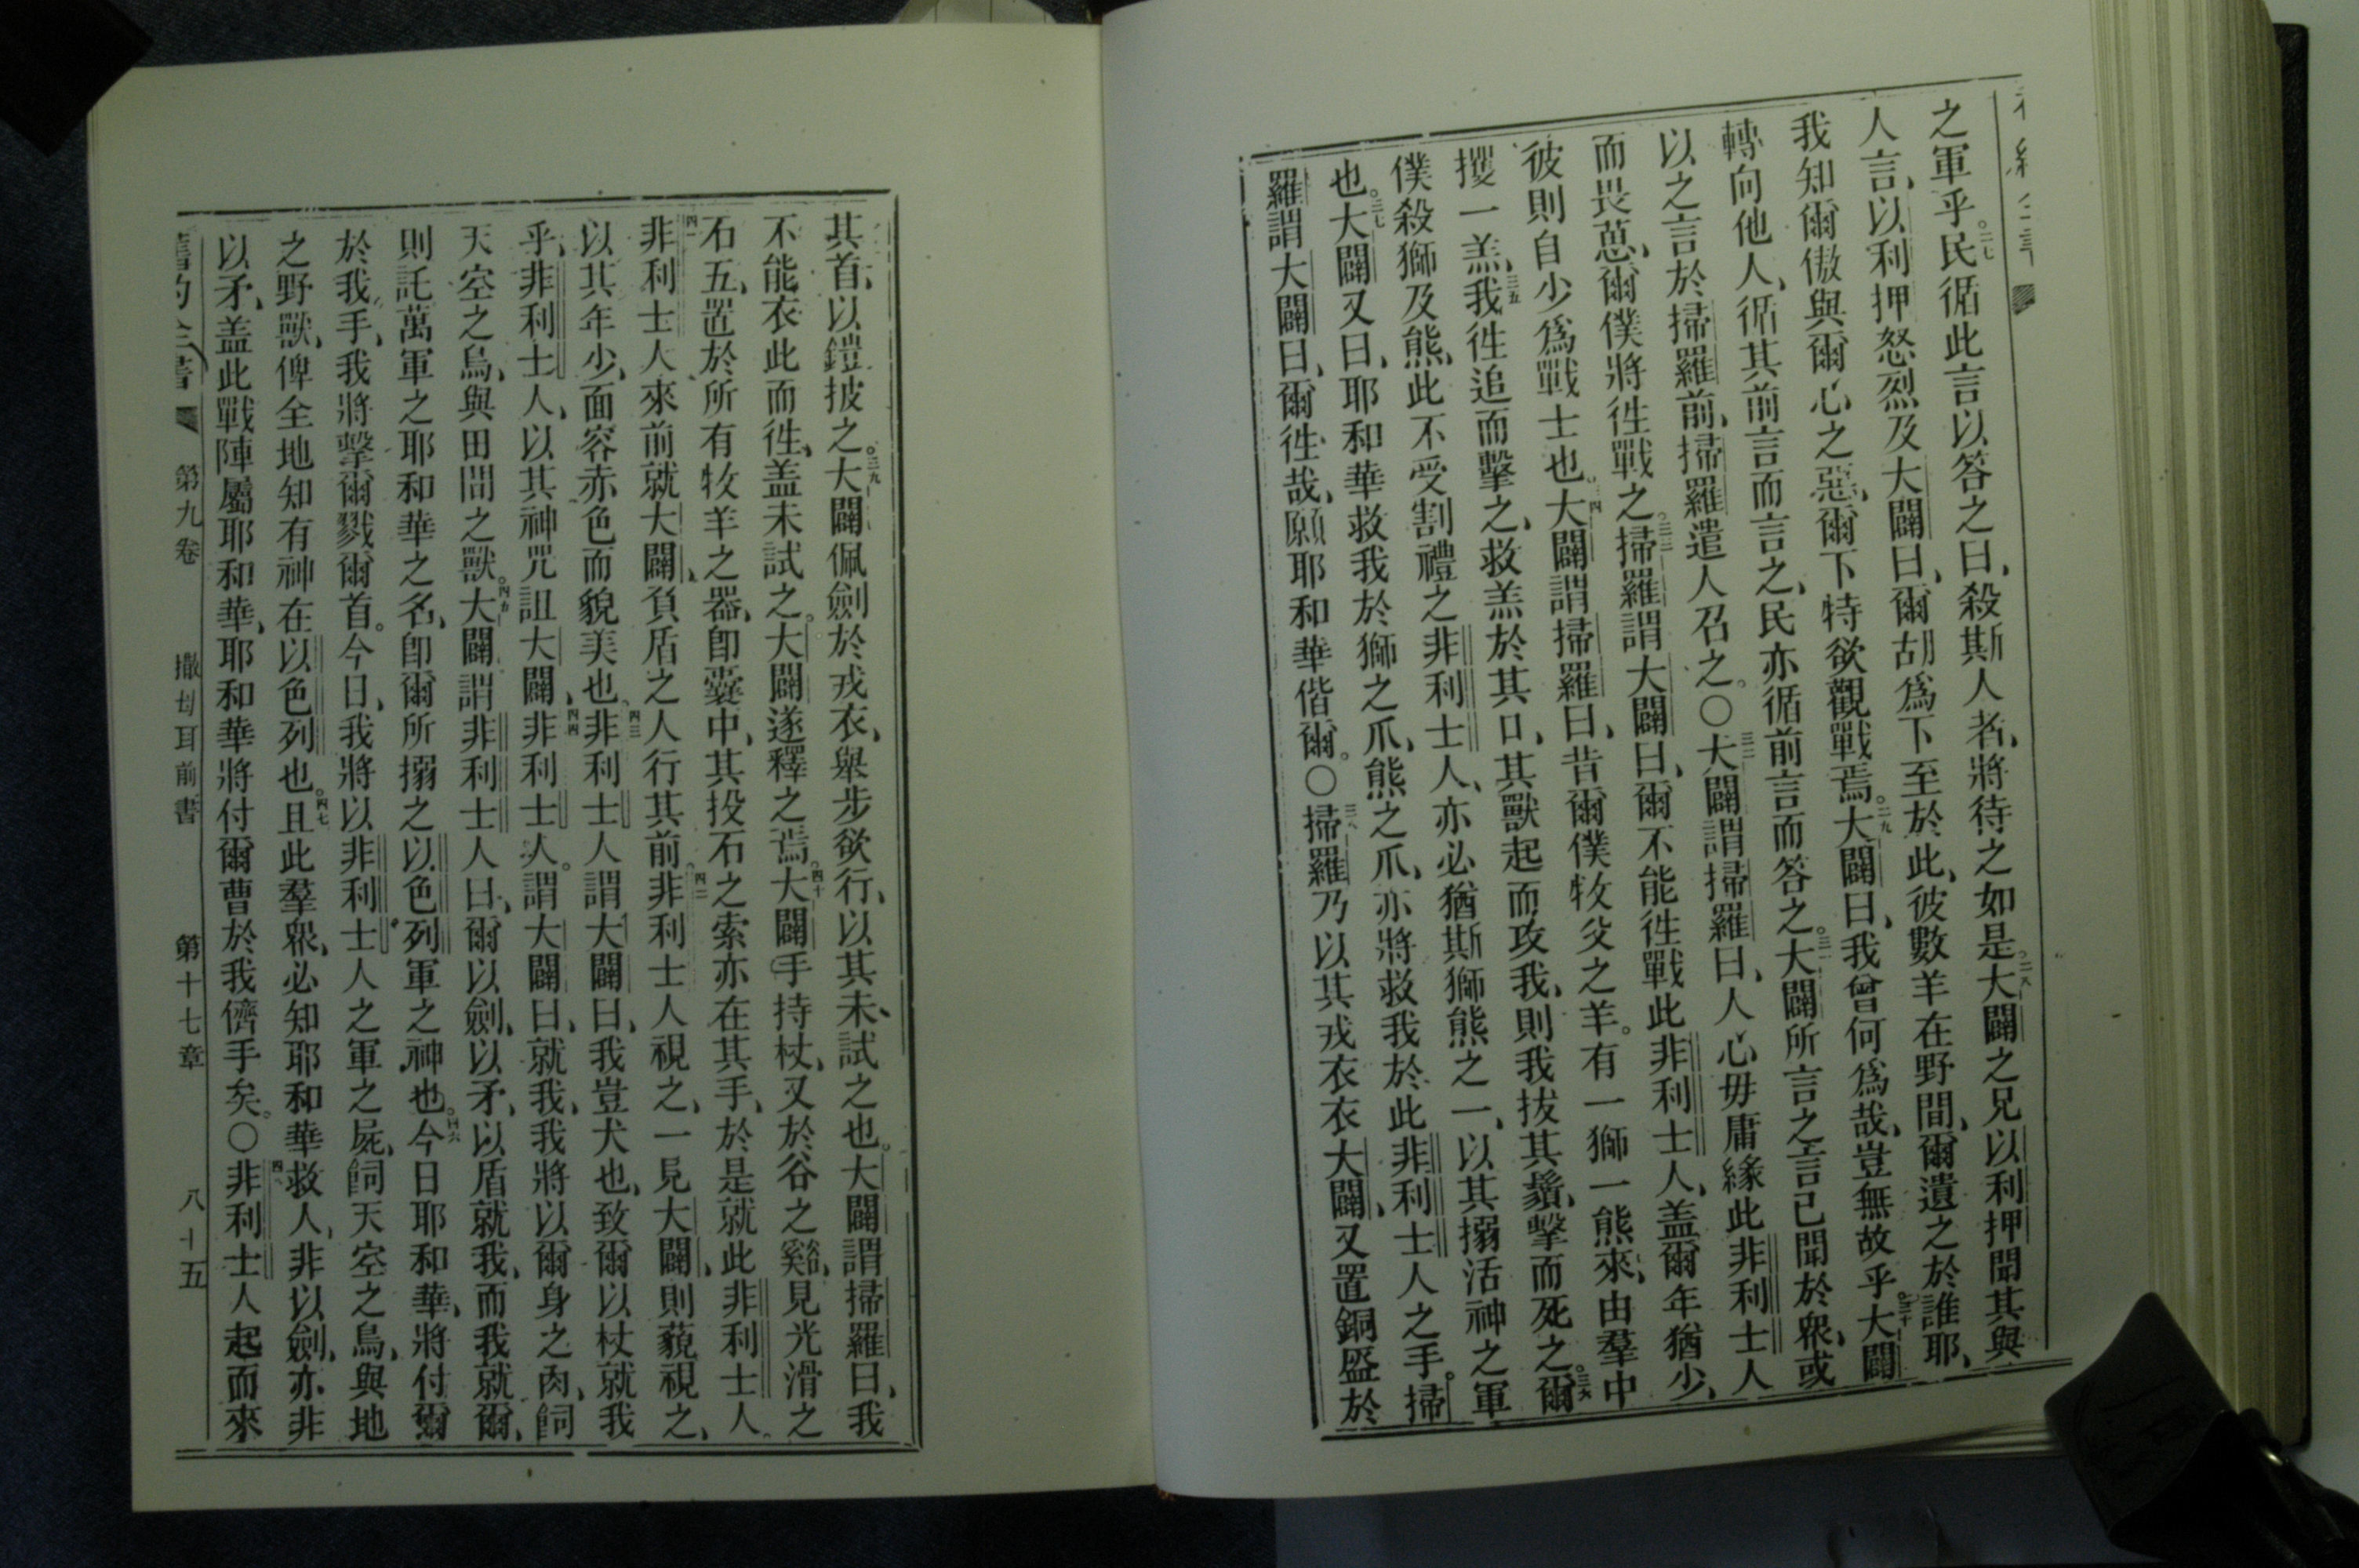 之軍乎。二七民循此言以答之曰、殺斯人者、將待之如是。二八大闢之兄以利押聞其與
人言、以利押怒烈及大闢曰、爾胡爲下至於此、彼數羊在野間、爾遺之於誰耶、
我知爾傲與爾心之惡、爾下特欲觀戰焉。二九大闢曰、我曾何爲哉、豈無故乎。三十大闢
轉向他人、循其前言而言之、民亦循前言而答之。三一大闢所言之言已聞於衆、或
以之言於掃羅前、掃羅遣人召之。〇三二大闢謂掃羅曰、人心毋庸緣此非利士人
而畏葸、爾僕將徃戰之。三三掃羅謂大闢曰、爾不能徃戰此非利士人、盖爾年猶少、
彼則自少爲戰士也。三四大闢謂掃羅曰、昔爾僕牧父之羊。有一獅一熊來、由羣中
攫一羔、三五我徃追而擊之、救羔於其口、其獸起而攻我、則我拔其鬚、擊而死之。三六爾
僕殺獅及熊、此不受割禮之非利士人、亦必猶斯獅熊之一、以其搦活神之軍
也。三七大闢又曰、耶和華救我於獅之爪、熊之爪、亦將救我於此非利士人之手。掃
羅謂大闢曰、爾徃哉、願耶和華偕爾。〇三八掃羅乃以其戎衣衣大闢、又置銅盔於
其首、以鎧披之。三九大闢佩劍於戎衣、舉步欲行、以其未試之也。大闢謂掃羅曰、我
不能衣此而徃、盖未試之。大闢遂釋之焉。四十大闢手持杖、又於谷之谿、見光滑之
石五、置於所有牧羊之器、卽囊中、其投石之索亦在其手、於是就此非利士人。
四一非利士人來前就大闢、負盾之人行其前。四二非利士人視之、一見大闢、則藐視之、
以其年少、面容赤色而貌美也。四三非利士人謂大闢曰、我豈犬也、致爾以杖就我
乎、非利士人、以其神咒詛大闢、四四非利士人。謂大闢曰、就我、我將以爾身之肉、飼
天空之鳥、與田間之獸。四五大闢謂非利士人曰、爾以劍、以矛、以盾就我、而我就爾、
則託萬軍之耶和華之名、卽爾所搦之以色列軍之神也。四六今日耶和華、將付爾
於我手、我將擊爾戮爾首。今日、我將以非利士人之軍之屍、飼天空之鳥、與地
之野獸、俾全地知有神在以色列也。四七且此羣衆、必知耶和華救人、非以劍、亦非
以矛、盖此戰陣屬耶和華、耶和華將付爾曹於我儕手矣。〇四八非利士人起而來
舊約全書 第九卷 撒母耳前書 第十七章 八十五